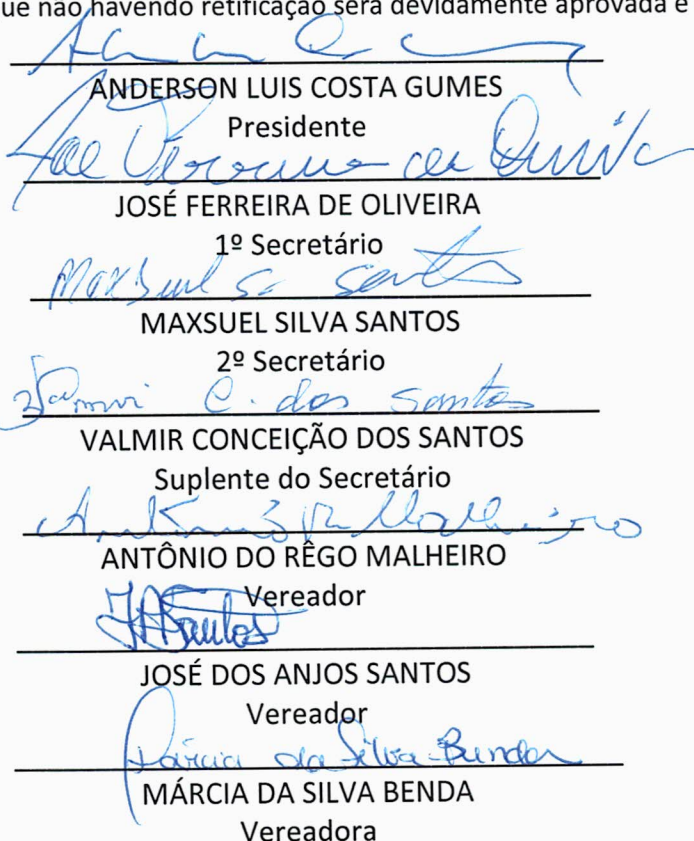 ue não havendo retificação será devidamente aprovada e
ANDERSON LUIS COSTA GUMES
Presidente
JOSÉ FERREIRA DE OLIVEIRA
1º Secretário
Maxsuel S. Santos
MAXSUEL SILVA SANTOS
2º Secretário
C. dos Santos
VALMIR CONCEIÇÃO DOS SANTOS
Suplente do Secretário
Malheiro
ANTÔNIO DO RÊGO MALHEIRO
Vereador
JASantos
JOSÉ DOS ANJOS SANTOS
Vereador
Márcia da Silva Benda
MÁRCIA DA SILVA BENDA
Vereadora